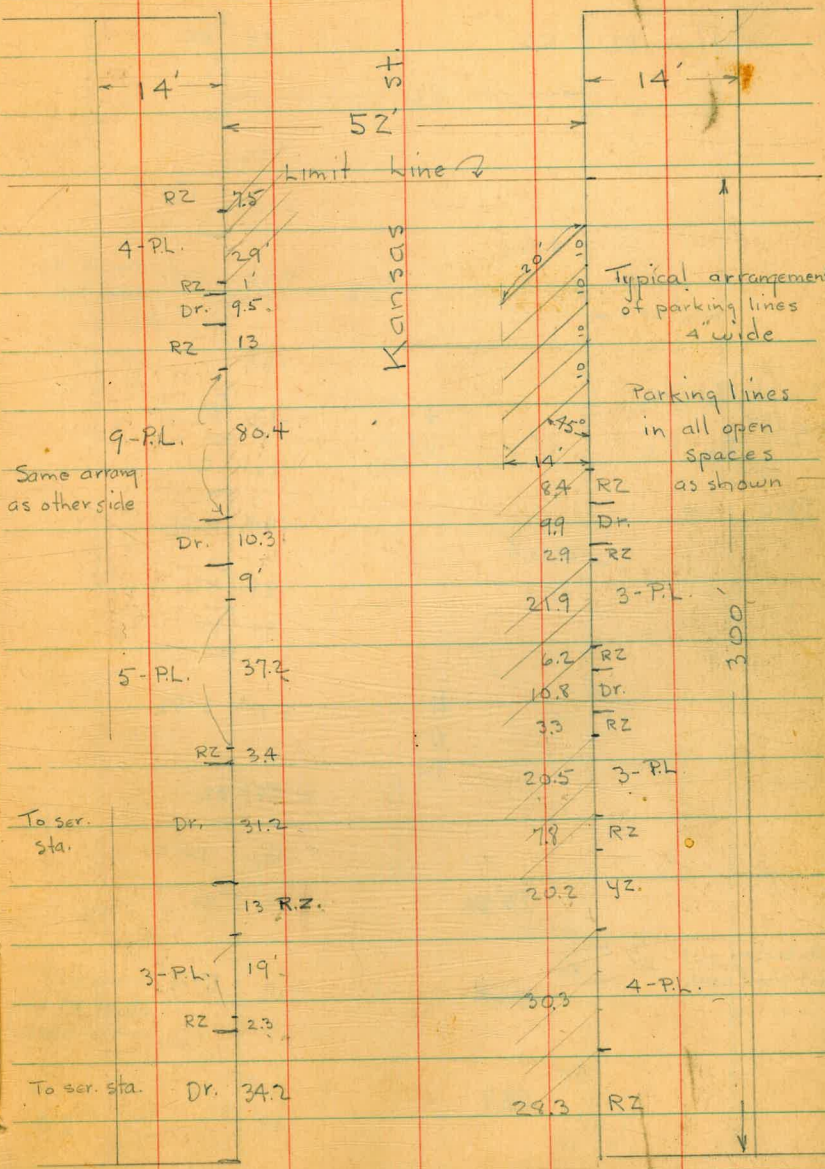 14'
52'
14'
Kansas st.
Limit Line
RZ 7.5
4-P.L. 29'
RZ 1'
Dr. 9.5
RZ 13
9-P.L. 80.4
Same arrang
as other side
Dr. 10.3
9'
5-P.L. 37.2
RZ 3.4
To ser.
sta.
Dr. 31.2
13 R.Z.
3-P.L. 19'
RZ 2.3
To ser. sta. Dr. 34.2
20'
10
10
10
10
45°
14'
Typical arrangemen
of parking lines
4" wide
Parking lines
in all open
spaces
as shown
8.4 RZ
9.9 Dr.
2.9 RZ
21.9 3-P.L.
6.2 RZ
10.8 Dr.
3.3 RZ
20.5 3-P.L
7.8 RZ
20.2 YZ.
30.3 4-P.L.
RZ
300'